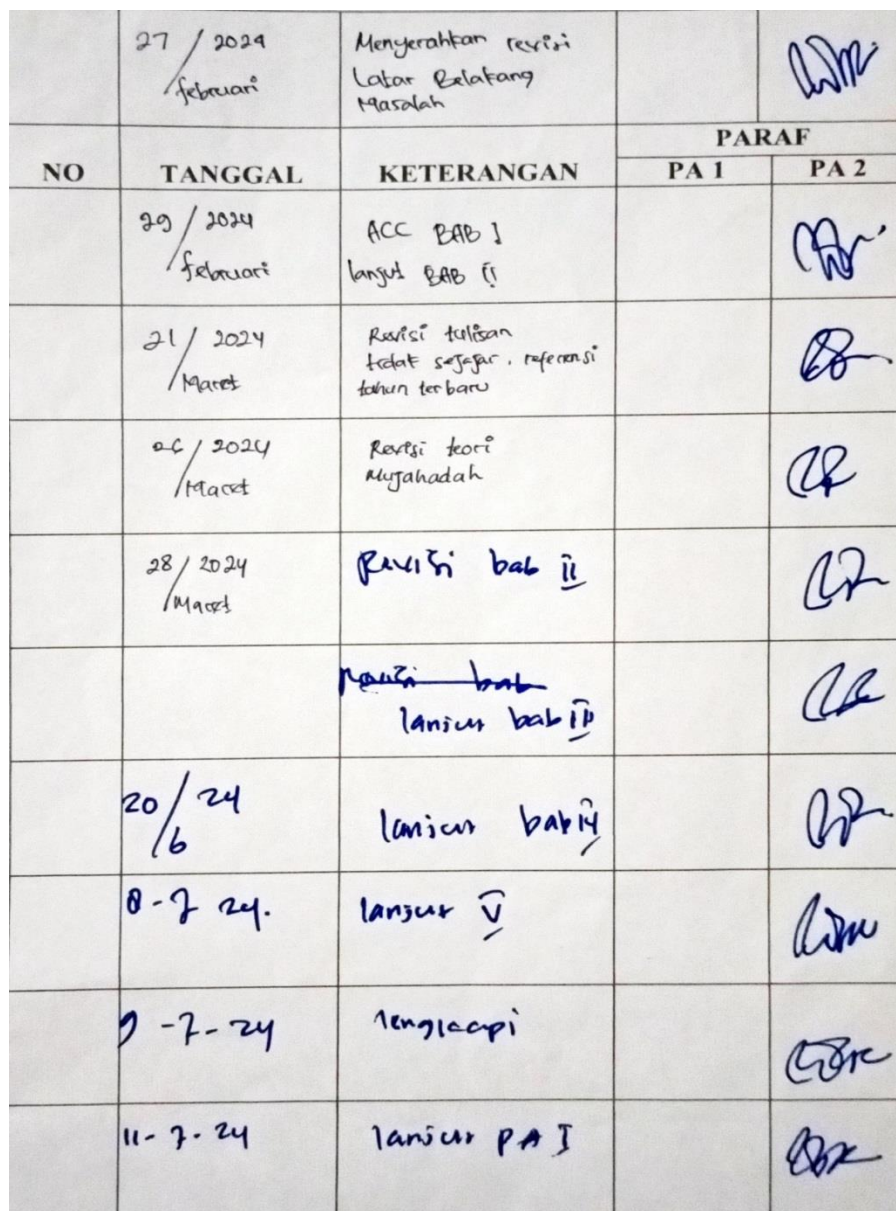 27 / 2024
februari
Menyerahkan revisi
Latar Belakang
Masalah
NO TANGGAL KETERANGAN PARAF
PA 1 PA 2
29 / 2024
februari
ACC BAB I
lanjut BAB II
21 / 2024
Maret
Revisi tulisan
tidak sejajar, referensi
tahun terbaru
26 / 2024
Maret
Revisi teori
Mujahadah
28 / 2024
Maret
Revisi bab II
Revisi bab
lanjut bab III
20 / 24
6
lanjut bab IV
8-7 24.
lanjut V
9-7-24
lengkapi
11-7-24
lanjut PA I